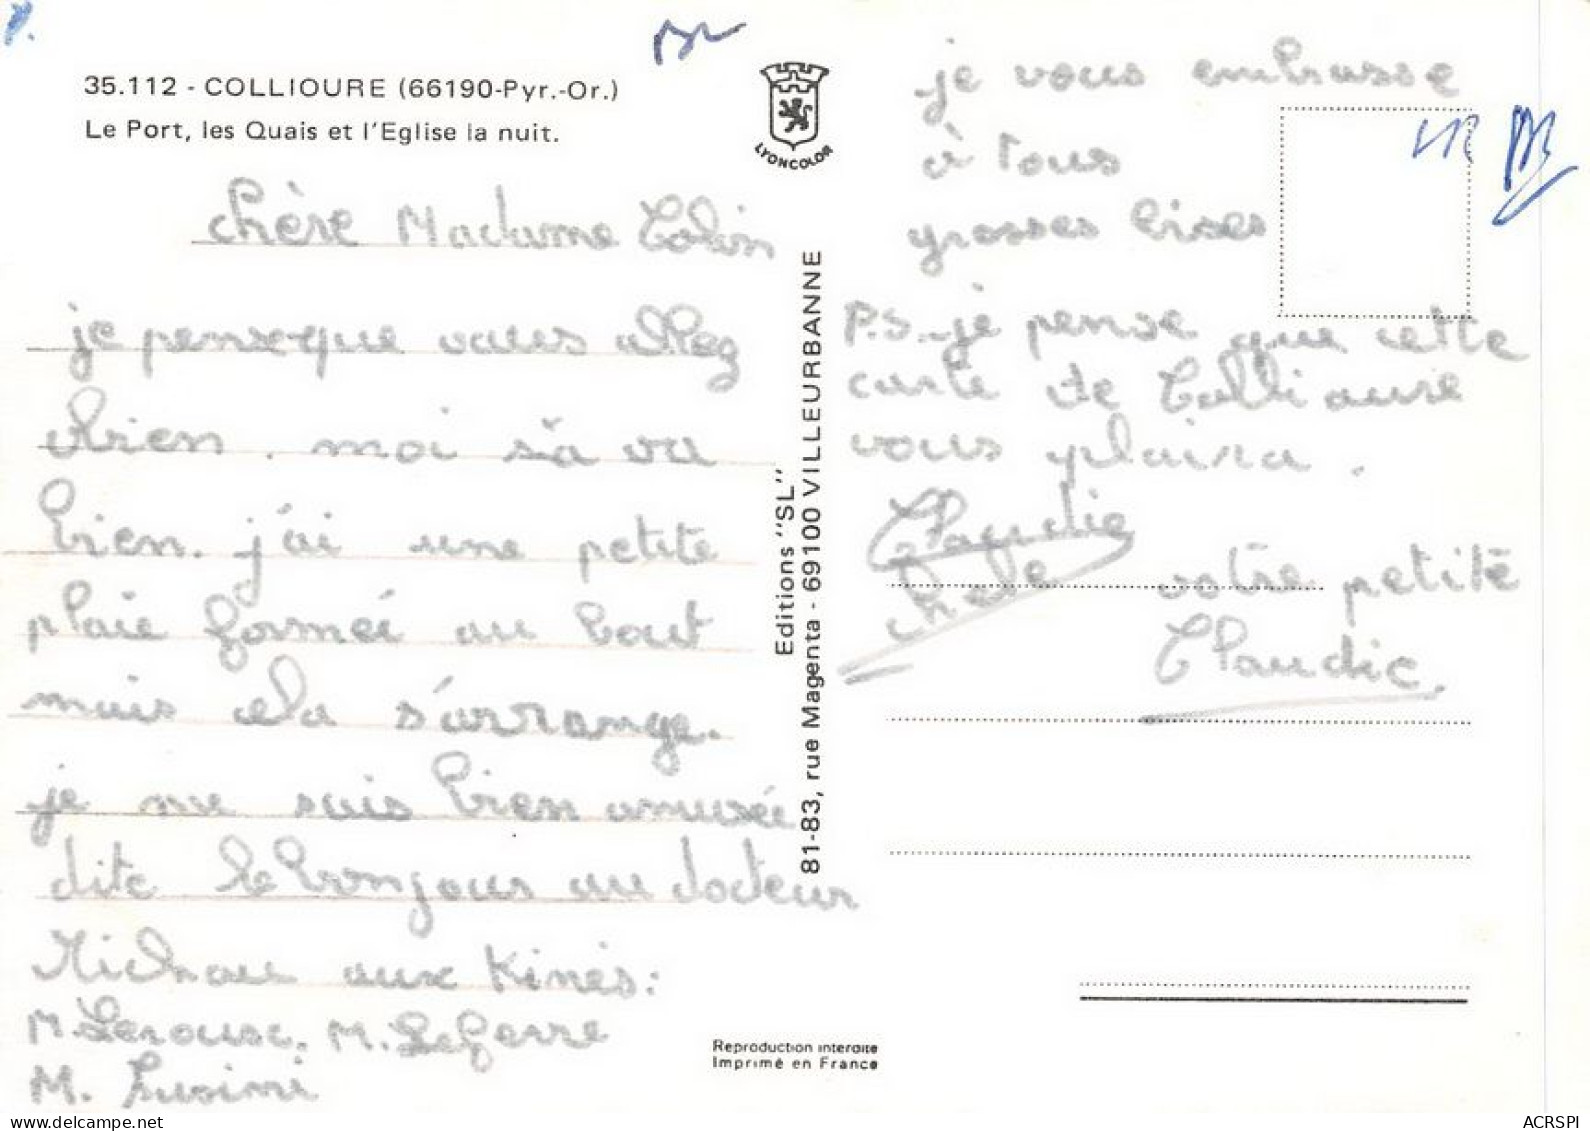 35.112 - COLLIOURE (66190-Pyr.-Or.)
Le Port, les Quais et l'Eglise la nuit.
LYONCOLOR
chère Madame Colin
je penseque vous allez
bien. moi s'a va
bien. j'ai une petite
plaie formée au bout
mais cela s'arrange.
je me suis bien amusée
dite le bonjour au docteur
Michau aux Kinés:
M. Lerouse, M. Leferre
M.
Editions "SL"
81-83, rue Magenta - 69100 VILLEURBANNE
je vous embrasse
à tous
grosses bises
P.S. je pense que cette
carte de Collioure
vous plaira.
Claudie
votre petite
Claudie.
Reproduction interdite
Imprimé en France
ACRSPI